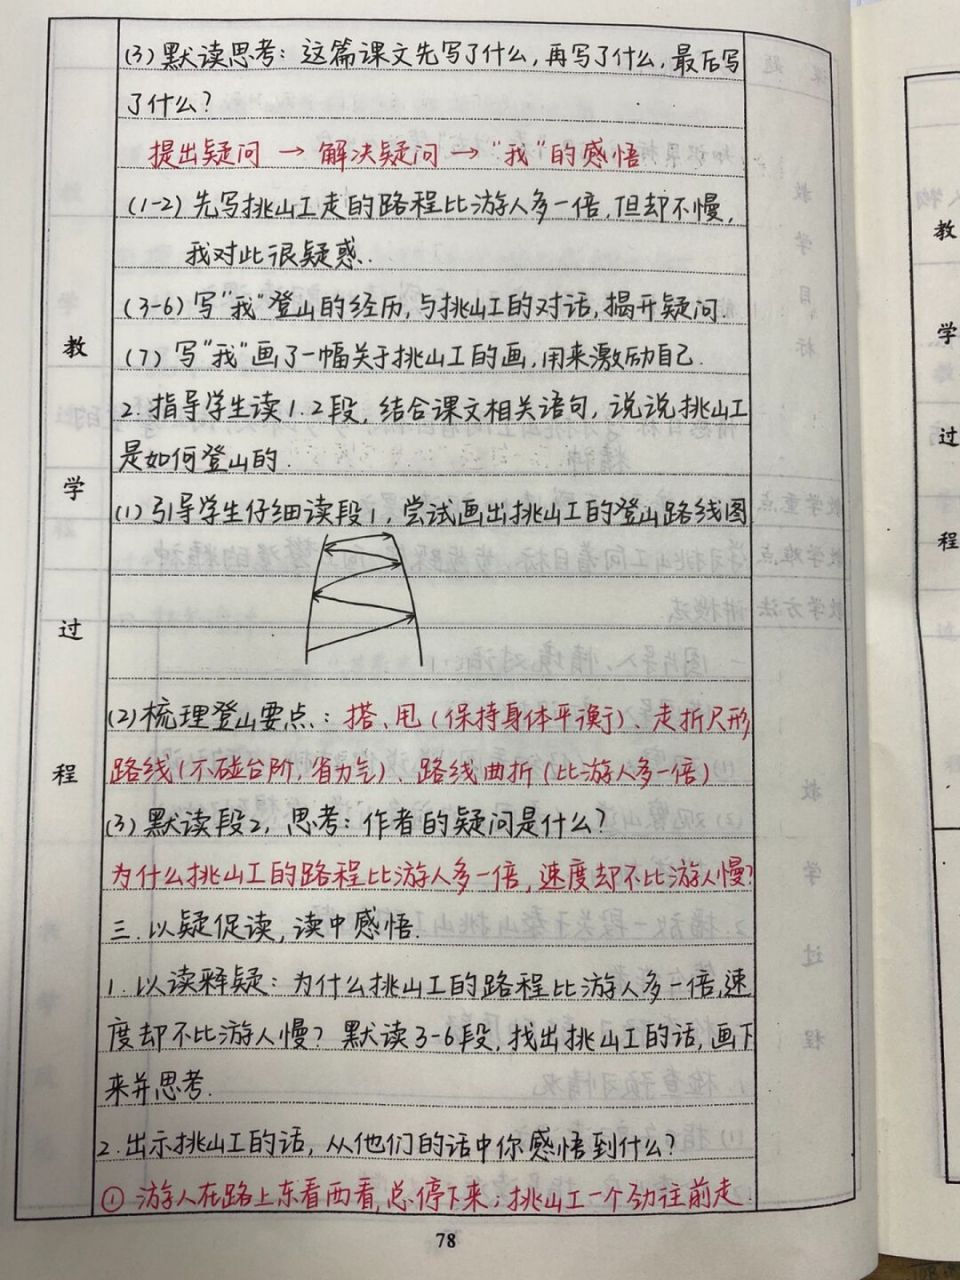 (3) 默读思考：这篇课文先写了什么，再写了什么，最后写
了什么？
提出疑问 → 解决疑问 → "我"的感悟
(1-2) 先写挑山工走的路程比游人多一倍，但却不慢，
我对此很疑惑.
(3-6) 写"我"登山的经历，与挑山工的对话，揭开疑问.
(7) 写"我"画了一幅关于挑山工的画，用来激励自己.
2. 指导学生读1.2段，结合课文相关语句，说说挑山工
是如何登山的.
(1) 引导学生仔细读段1，尝试画出挑山工的登山路线图
(2) 梳理登山要点：搭、甩（保持身体平衡）、走折尺形
路线（不碰台阶，省力气）、路线曲折（比游人多一倍）
(3) 默读段2，思考：作者的疑问是什么？
为什么挑山工的路程比游人多一倍，速度却不比游人慢？
三. 以疑促读，读中感悟.
1. 以读释疑：为什么挑山工的路程比游人多一倍，速
度却不比游人慢？默读3-6段，找出挑山工的话，画下
来并思考.
2. 出示挑山工的话，从他们的话中你感悟到什么？
① 游人在路上东看西看，总停下来；挑山工一个劲往前走.
教
学
过
程
78
教
学
过
程